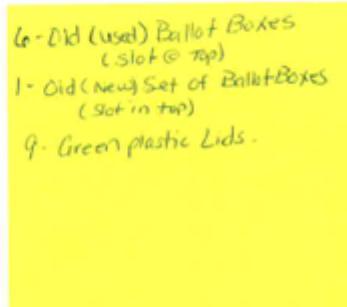 6-Old (used) Ballot Boxes
(slot @ Top)
1- Old (New) Set of Ballot Boxes
(slot in top)
9- Green plastic Lids.